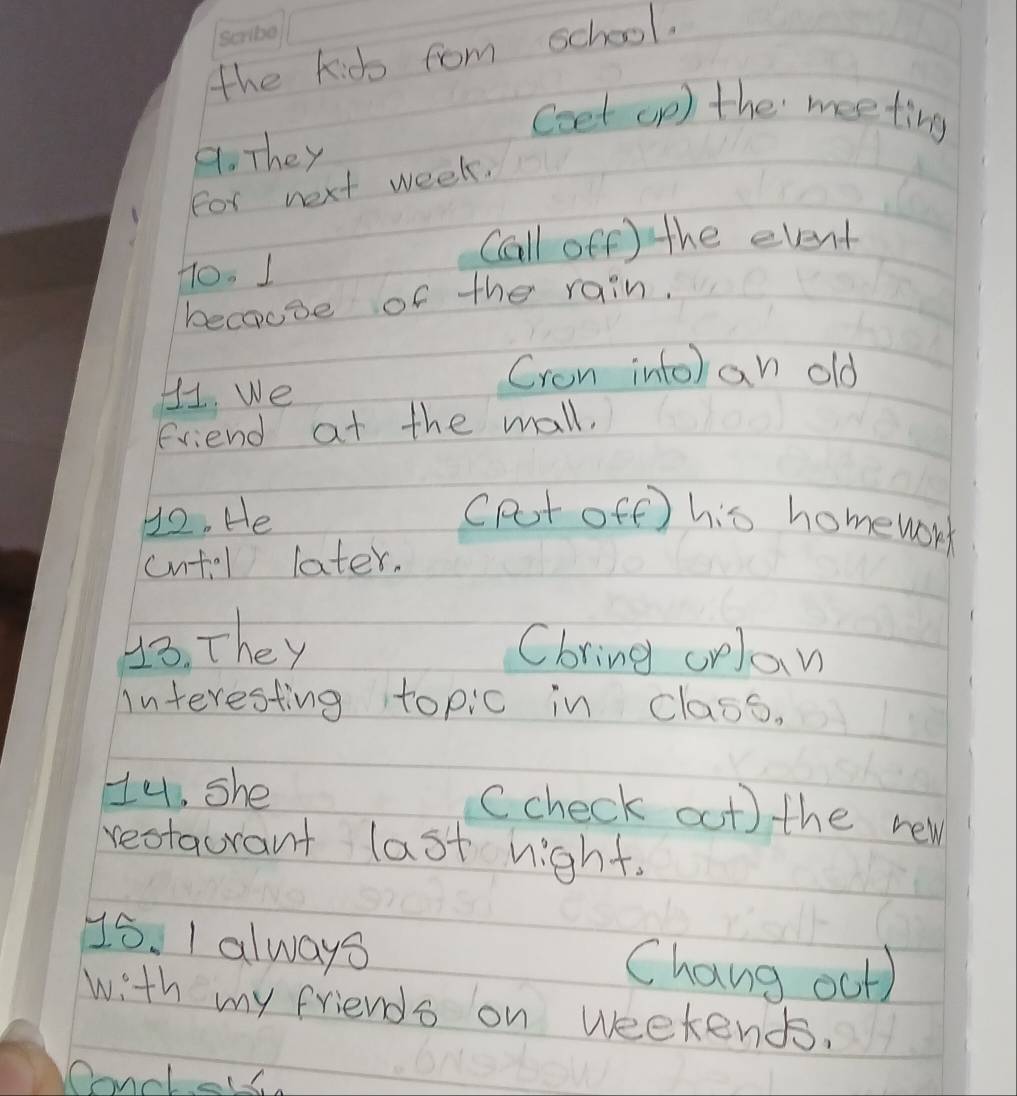 Scribe
the kids from school.
9. They (set up) the meeting
for next week.
10. I (call off) the event
because of the rain.
11. We (run into) an old
friend at the mall.
12. He (put off) his homework
until later.
13. They (bring up) an
interesting topic in class.
14. She (check out) the new
restaurant last night.
15. I always (hang out)
with my friends on weekends.